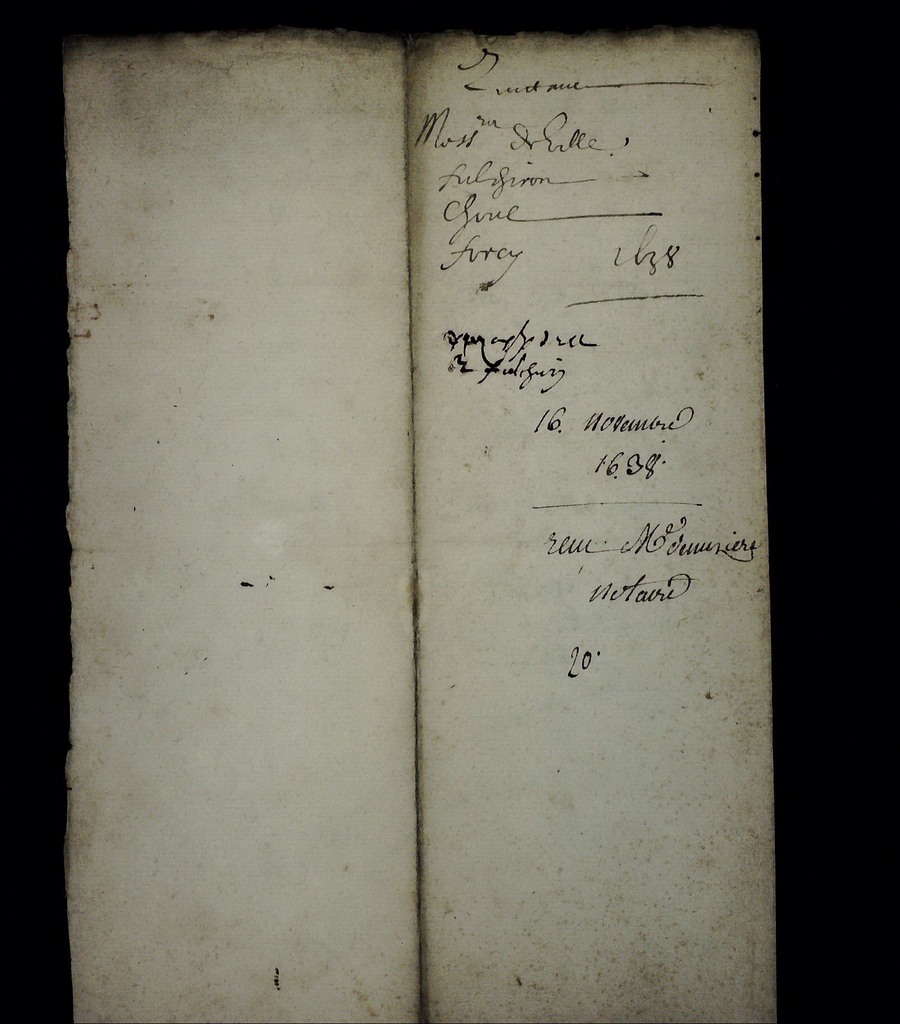 Quittance
Mess^rs De Lille
fulchiron
Choul
forcy 1638
fulchiron
16. novembre
1638.
reçu M^e
notaire
20.